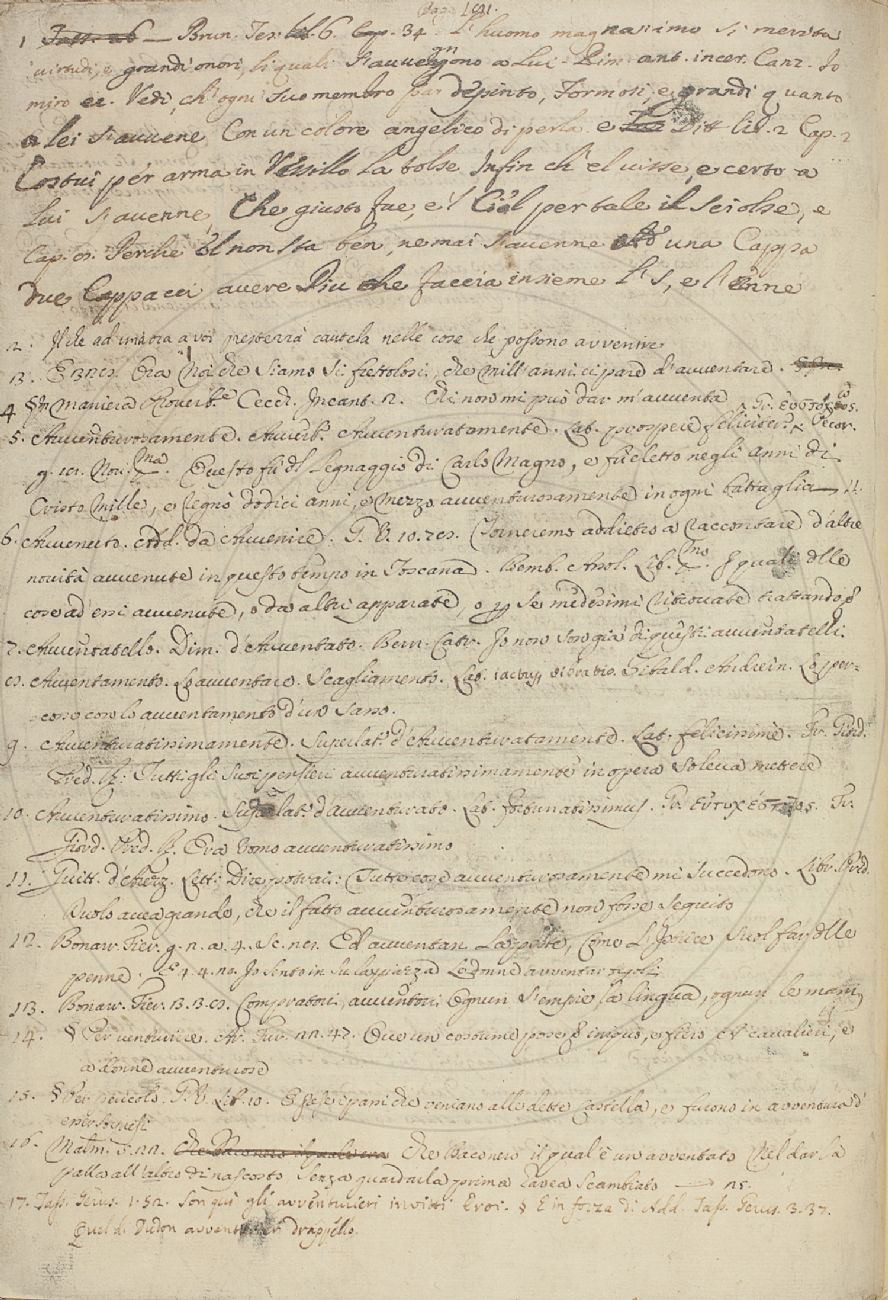 pag. 191.
1 Brun. Tes. 6. Cap. 34 L'huomo magnanimo si merita
virtudi, e grandi onori, li quali s'avvengono a Lui Rim. ant. incer. Canz. Io
miro ec. Vedi, ch'ogni suo membro par depinto, Formosi, e grandi quanto
a lei s'avvene Con un colore angelico di perla e Ditt lib. 2 Cap. 2
Costui per arma in Vessillo la tolse Infin ch'el visse, e certo a
Lui s'avenne, Che giusto fue, e'l Ciel per tale il sciolse, e
Cap. Perche el non sta ben, ne mai s'avenne una Cappa
due Cappacci avere Piu che faccia insieme l'S, e l'Enne
2. Il che ad una tra voi presterrà cautela nelle cose che possono avvenire
3. E Noi che siamo sì frettolosi, che mill'anni ci pare d'avventare.
4 § In maniera Proverb.le Cecch. Incant. Chi non mi può dar m'avventa
5. Avventurosamente. Avverb. Avventuratamente. Lat. prospere feliciter. Gr. Pecor.
g. Nov. Questo fu del legnaggio di Carlo Magno, e fu eletto negli anni di
Cristo Mille, e regnò dodici anni, e mezzo avventurosamente in ogni battaglia
6. Avvenuto. Add. da Avvenire. G. V. 10. Torneremo addietro a raccontare d'altre
novità avvenute in questo tempo in Toscana. Bemb. Asol. Lib. I quali dlle
cose ad essi avvenute, o da altri apparate, o p se medesimi ritrovate trattando
7. Avventatello. Dim. d'Avventato. Bern. Catr. Io non son già di questi avventatelli
Avventamento. Lo avventare. Scagliamento. Lat. iactus vibratio. Andrein. Lo per-
cosse con lo avventamento d'un sasso.
9. Avventuratissimamente. Superlat. d'Avventuratamente. Lat. felicissime. Fr. Giord.
Pred. R. Tutti gli suoi pensieri avventuratissimamente in opera soleva mettere
10. Avventuratissimo. Superlat. d'avventurato. Lat. fortunatissimus. Gr. Fr.
Giord. Pred. R. Era uomo avventuratissimo
11. Guitt. d'Arezz. Lett. Dire potrai: Tutte cose avventurosamente mi succedono. Libr. Pred.
Duolo avea grande, che il fatto avventurosamente non fosse seguito
12. Bonarr. Fier. g. 4. Ed avventan la peste, Come l'Istrice suol far dlle
penne. 4. 4. Io sento in su la piazza Le donne avventar
13. Bonarr. Fier. Compratori, avventori Ognun s'empie la lingua, ognun le mani
14. § Per venturiere. Ar. Fur. 47. Ove un costume pose e fiero, ai cavalieri, e
a donne avventurose
15. § Per pericolo. G. V. Lib. 10. che veniano alle dette Castella, e furono in avventura d'
esser
16. Malm. Che Baconero il qual è un avventato Nel dar la
palla all'altro di nascosto Senza guardarla prima l'avea scambiato
17. Tass. Gerus. 1. 52. Son qui gli avventurieri invitti Eroi. § E in forza di Add. Tass. Gerus. 3. 37.
Quel di Dudon avventurier drappello.